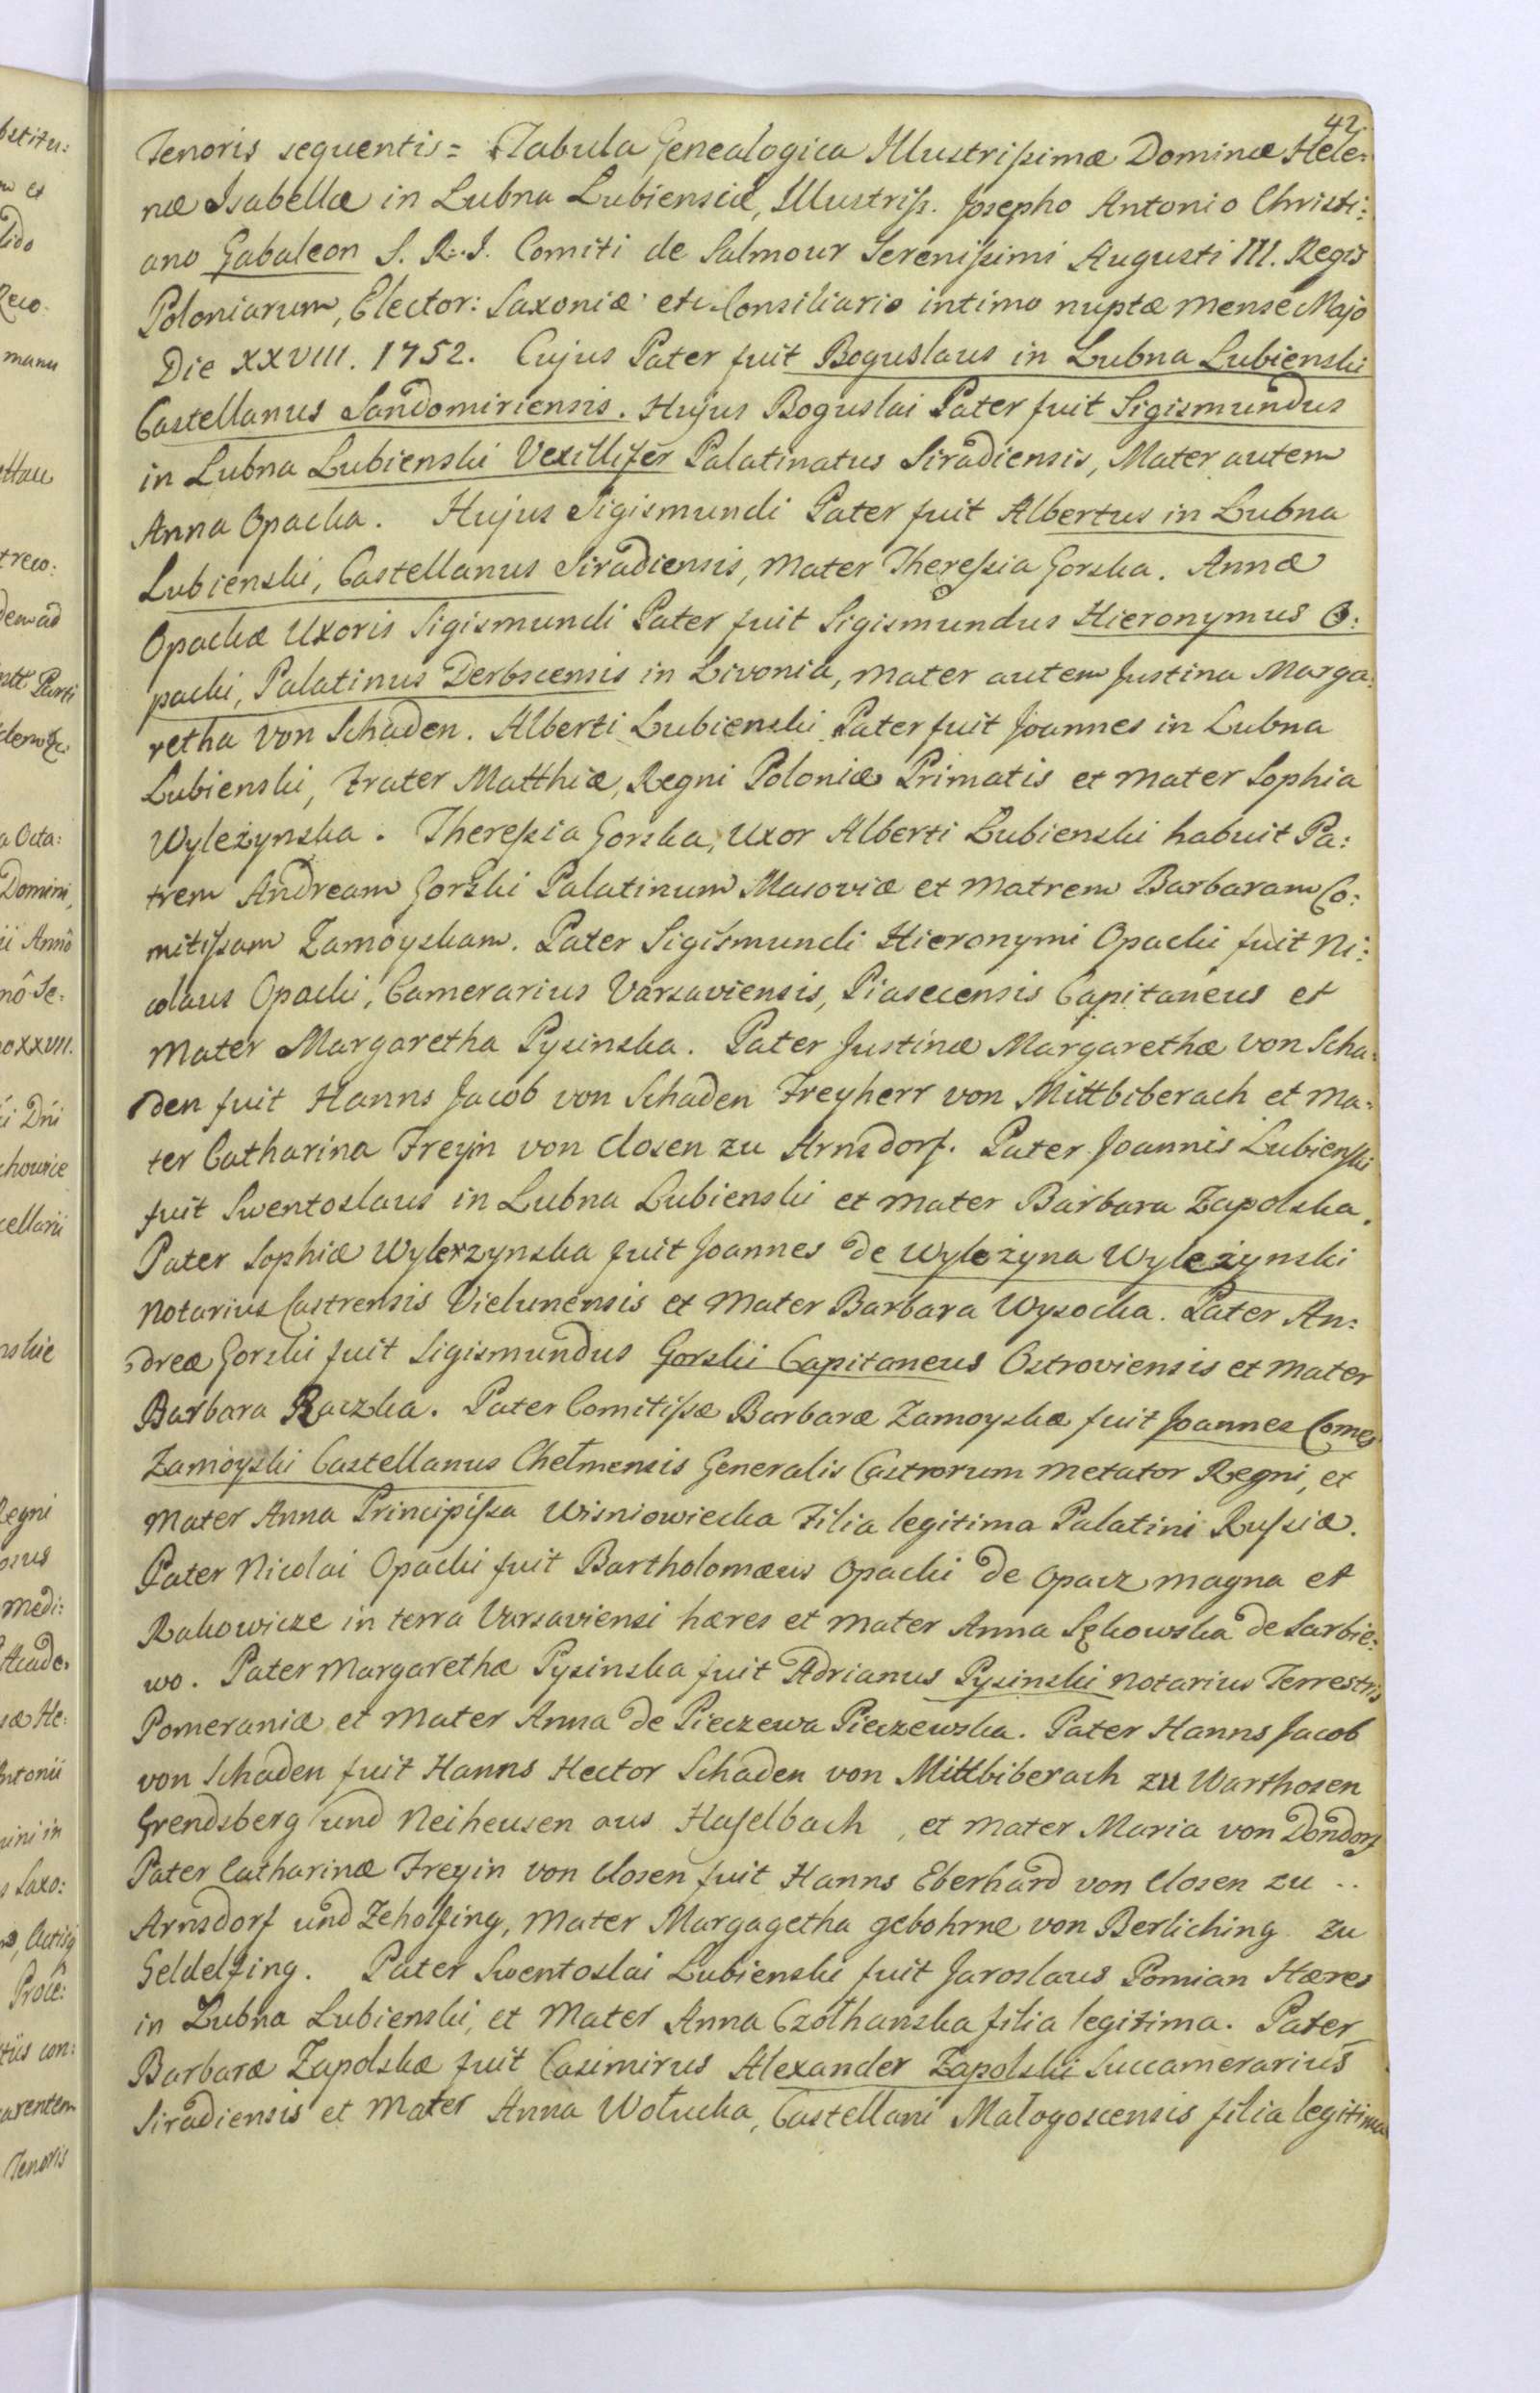 42
Tenoris sequentis = Tabula Genealogica Illustrissimæ Dominæ Hele:
næ Isabellæ in Lubna Lubiensciæ, Illustriss. Josepho Antonio Christi:
ano Gabaleon S. R. I. Comiti de Salmour Serenissimi Augusti III. Regis
Poloniarum, Elector: Saxoniæ etc Consiliario intimo nuptæ mense Majo
Die XXVIII. 1752. Cujus Pater fuit Boguslaus in Lubna Lubienski
Castellanus Sandomiriensis. Hujus Boguslai Pater fuit Sigismundus
in Lubna Lubienski Vexillifer Palatinatus Siradiensis, Mater autem
Anna Opacka. Hujus Sigismundi Pater fuit Albertus in Lubna
Lubienski, Castellanus Siradiensis, Mater Theressia Gorska. Annæ
Opackæ Uxoris Sigismundi Pater fuit Sigismundus Hieronymus O:
packi, Palatinus Derbscensis in Livonia, mater autem Justina Marga:
retha von Schaden. Alberti Lubienski Pater fuit Joannes in Lubna
Lubienski, Frater Matthiæ, Regni Poloniæ Primatis et mater Sophia
Wyleżynska. Theressia Gorska, Uxor Alberti Lubienski habuit Pa:
trem Andream Gorski Palatinum Masoviæ et matrem Barbaram Co:
mitissam Zamoyskam. Pater Sigismundi Hieronymi Opacki fuit Ni:
colaus Opacki, Camerarius Varsaviensis, Piasecensis Capitaneus et
Mater Margaretha Pysinska. Pater Justinæ Margarethæ von Scha:
den fuit Hanns Jacob von Schaden Freyherr von Mittbiberach et ma:
ter Catharina Freyin von Closen zu Arnsdorf. Pater Joannis Lubienski
fuit Swentoslaus in Lubna Lubienski et mater Barbara Zapolska.
Pater Sophiæ Wylerzynska fuit Joannes de Wyleżyna Wyleżynski
Notarius Castrensis Vielunensis et Mater Barbara Wysocka. Pater An:
dreæ Gorski fuit Sigismundus Gorskii Capitaneus Ostroviensis et mater
Barbara Raczka. Pater Comitissæ Barbaræ Zamoyskæ fuit Joannes Comes
Zamoyski Castellanus Chełmensis Generalis Castrorum metator Regni, et
Mater Anna Principissa Wisniowiecka Filia legitima Palatini Russiæ.
Pater Nicolai Opacki fuit Bartholomæus Opacki de Opacz magna et
Rakowicze in terra Varsaviensi hæres et mater Anna Sękowska de Sarbie:
wo. Pater Margarethæ Pysinska fuit Adrianus Pysinski Notarius Terrestris
Pomeraniæ et Mater Anna de Pieczewa Pieczewska. Pater Hanns Jacob
von Schaden fuit Hanns Hector Schaden von Mittbiberach zu Warthosen
Grendsberg und Neiheusen aus Haselbach, et mater Maria von Dondorf
Pater Catharinæ Freyin von Closen fuit Hanns Eberhard von Closen zu ..
Arnsdorf und Zeholfing, Mater Margagetha gebohrne von Berliching zu
Geldelfing. Pater Swentoslai Lubienski fuit Jaroslaus Pomian Hæres
in Lubna Lubienski, et Mater Anna Czołhanska filia legitima. Pater
Barbaræ Zapolskæ fuit Casimirus Alexander Zapolski Succamerarius
Siradiensis et Mater Anna Wołucka, Castellani Małogoscensis filia legitima